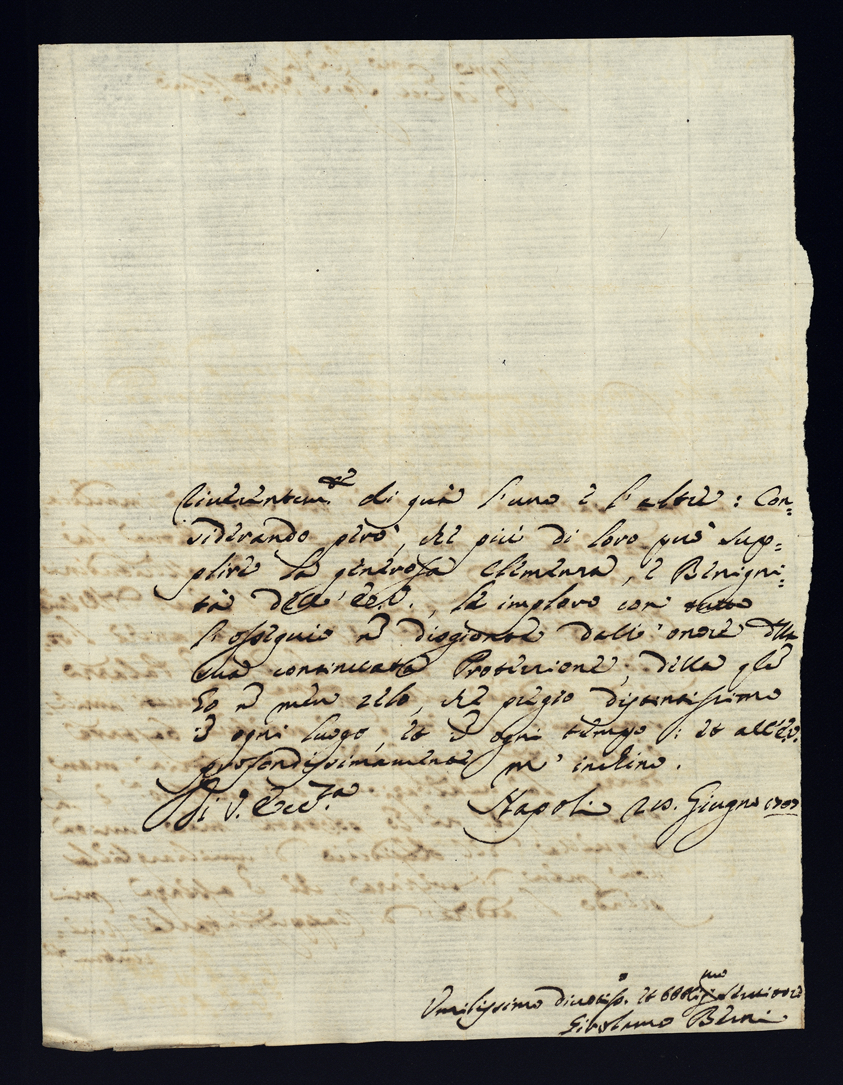 riverentem.te di quà l'uno e l'altro : Con=
siderando però, che più di loro può sup=
plire la generosa Clemenza, e Benigni=
tà dell' Ecc.V., la imploro con tutto
l'ossequio nõ disgionta dall' onore della
sua continuata Protezione, della q.le
Io nõ men zelo, che pregio distintissimo
ĩ ogni luogo, et ĩ ogni tempo : et all' E.V.
profondissimamente m' inchino.
Di V. Ecc.za Napoli Giugno 1707
Umilissimo divotiss.o et obblig.mo Servitore
Girolamo Berni